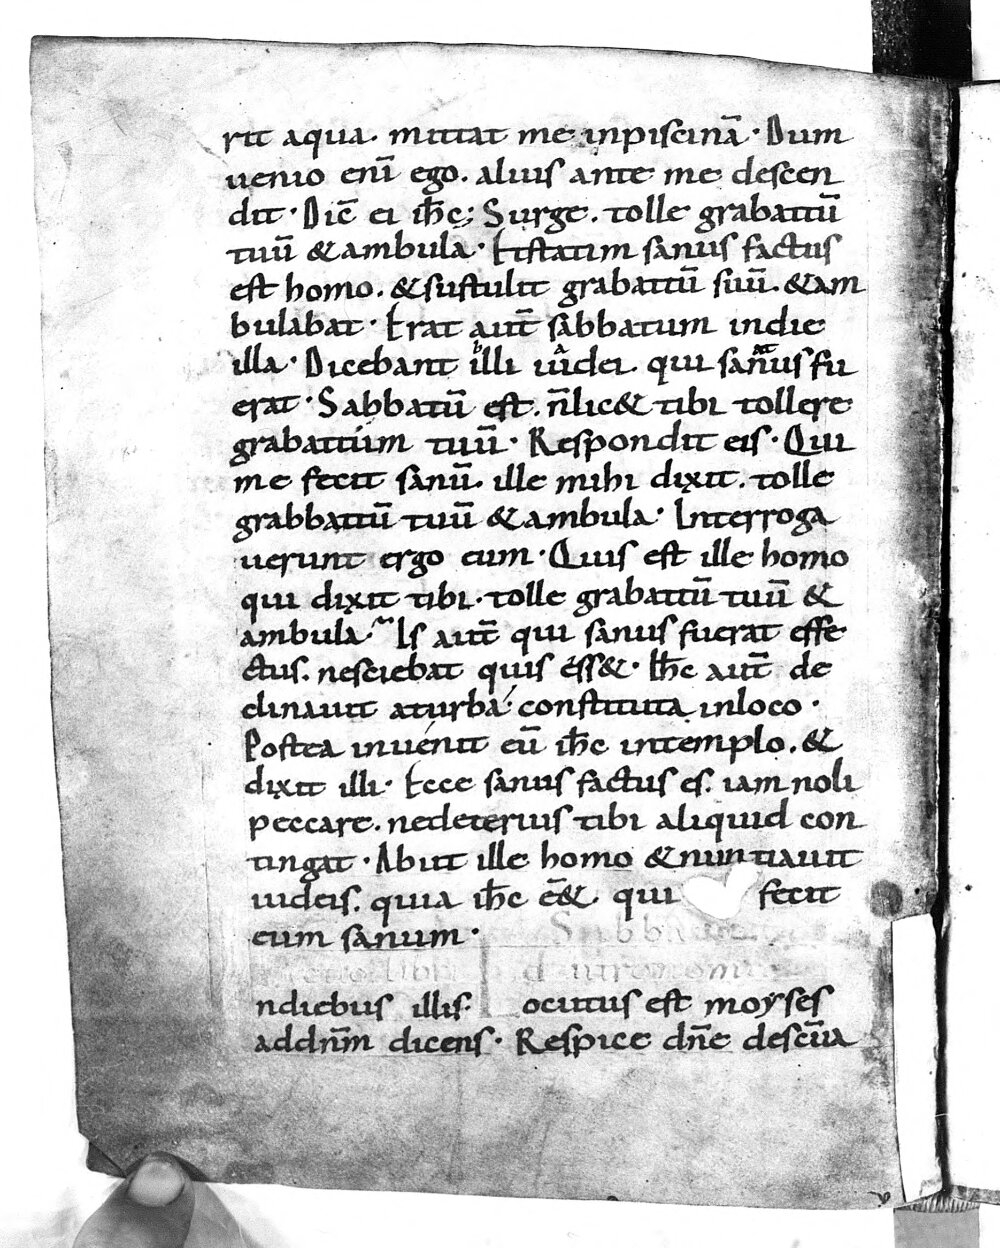 rit aqua. mittat me inpiscinā· Dum
uenio enī ego. alius ante me descen
dit· Dic̄ ei ih̄c; Surge. tolle grabattū
tuū &ambula· Etstatim sanus factus
est homo. &sustulit grabattū suū. &am
bulabat· Erat aut̄ sabbatum indie
illa· Dicebant illi iudei qui sanus fu
erat· Sabbatū est. n̄lic& tibi tollere
grabattum tuū· Respondit eis· Qui
me fecit sanū. ille mihi dixit. tolle
grabbattū tuū &ambula· Interroga
uerunt ergo eum· Quis est ille homo
qui dixit tibi. tolle grabattū tuū &
ambula· Is aut̄ qui sanus fuerat effe
ctus. nesciebat quis ess&· Ih̄c aut̄ de
clinauit aturba· constituta inloco·
Postea inuenit eū ih̄c intemplo. &
dixit illi· Ecce sanus factus es. iam noli
peccare. nedeterius tibi aliquid con
tingat· Abiit ille homo &nuntiauit
iudeis. quia ih̄c ē& qui fecit
eum sanum· Sabbato
libri
ndiebus illis· ocutus est moyses
addn̄m dicens· Respice dn̄e desc̄ua